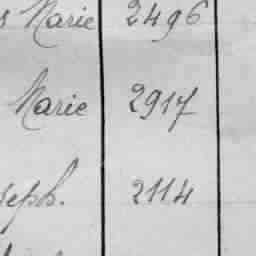 Marie 2496
Marie 2917
seph. 2114